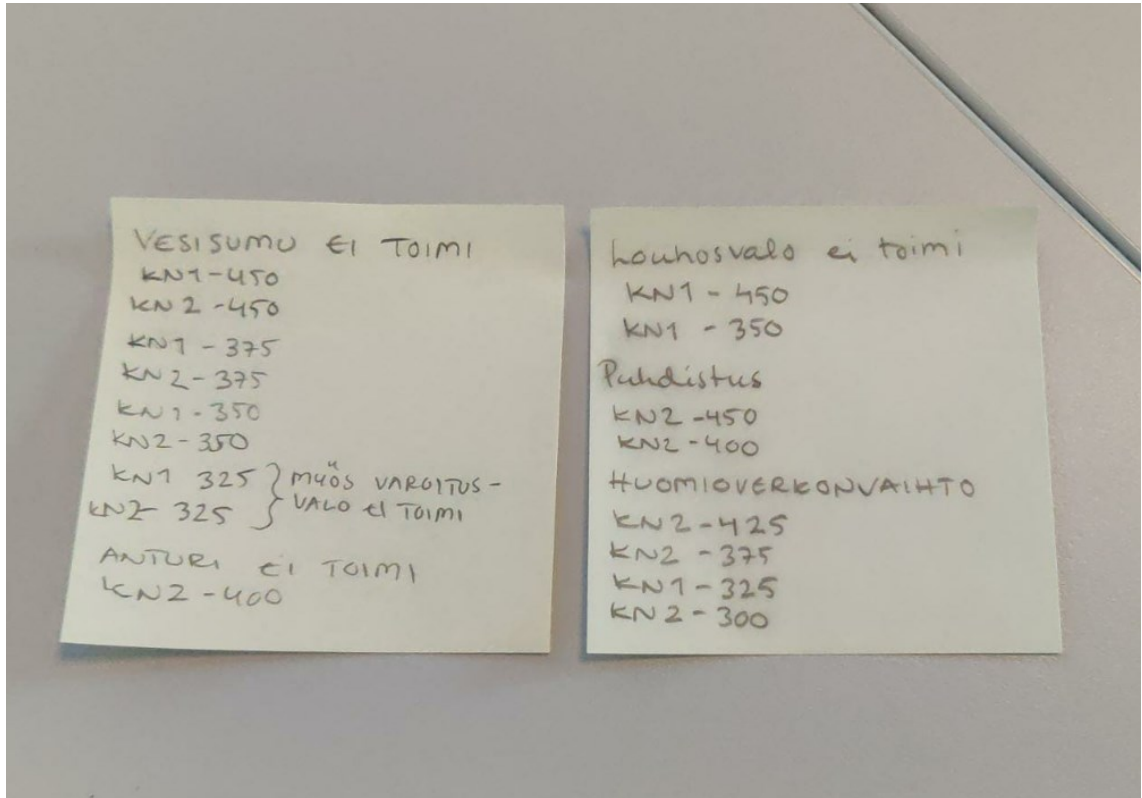 VESISUMU EI TOIMI
KN1-450
KN2-450
KN1-375
KN2-375
KN1-350
KN2-350
KN1 325 } MYÖS VAROITUS-
KN2 325 } VALO EI TOIMI
ANTURI EI TOIMI
KN2-400
Louhosvalo ei toimi
KN1-450
KN1-350
Puhdistus
KN2-450
KN2-400
HUOMIOVERKONVAIHTO
KN2-425
KN2-375
KN1-325
KN2-300